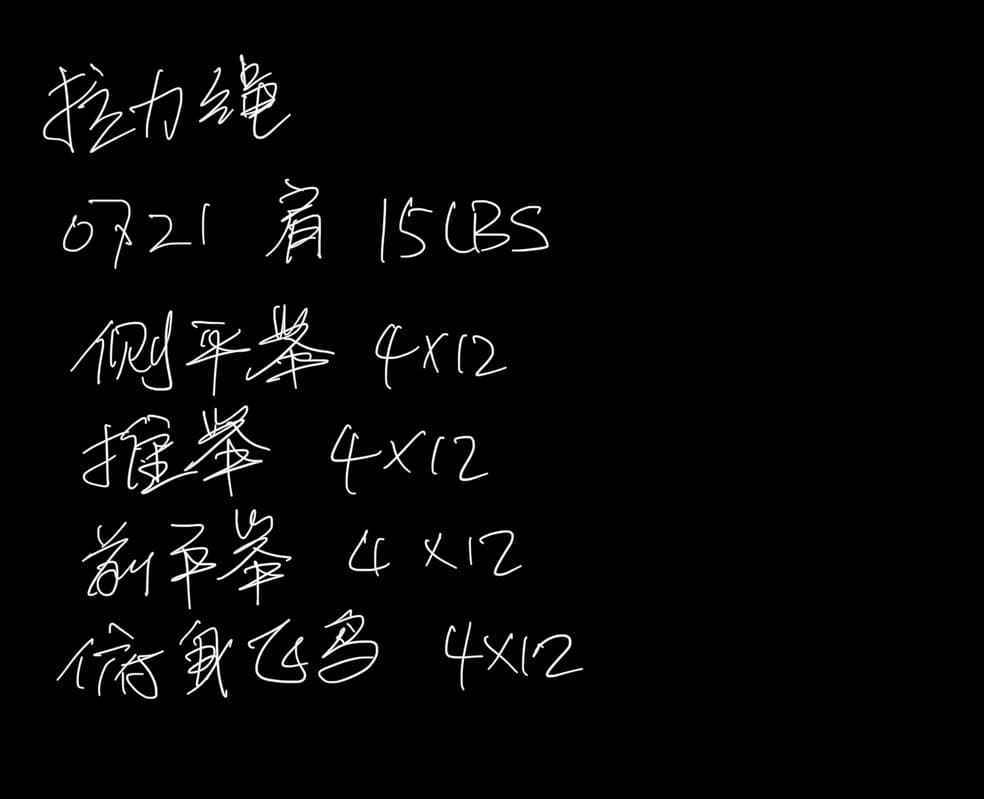 拉力绳
0721 肩 15LBS
侧平举 4×12
推举 4×12
前平举 4×12
俯身飞鸟 4×12